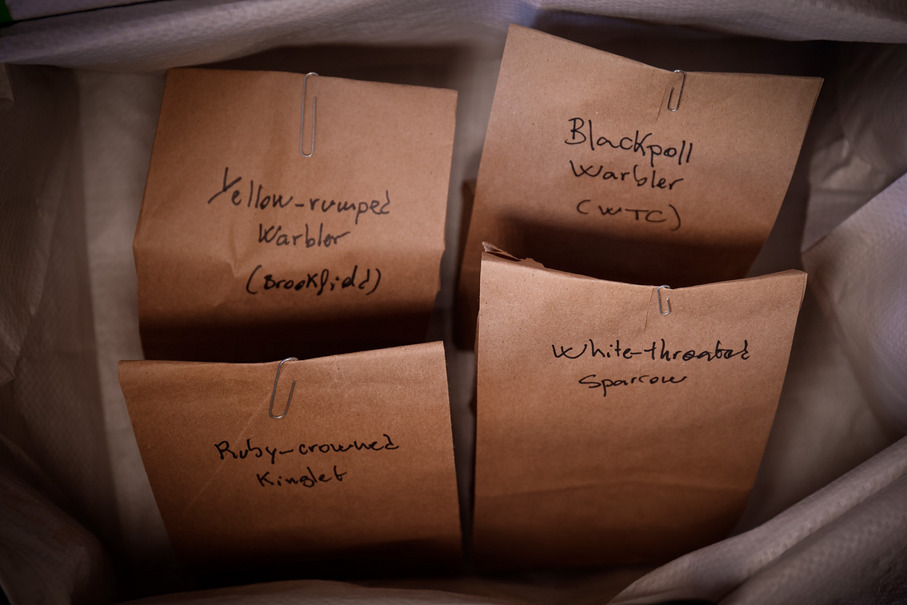 Yellow-rumped
Warbler
(Brookfield)
Blackpoll
Warbler
(WTC)
Ruby-crowned
Kinglet
White-throated
Sparrow